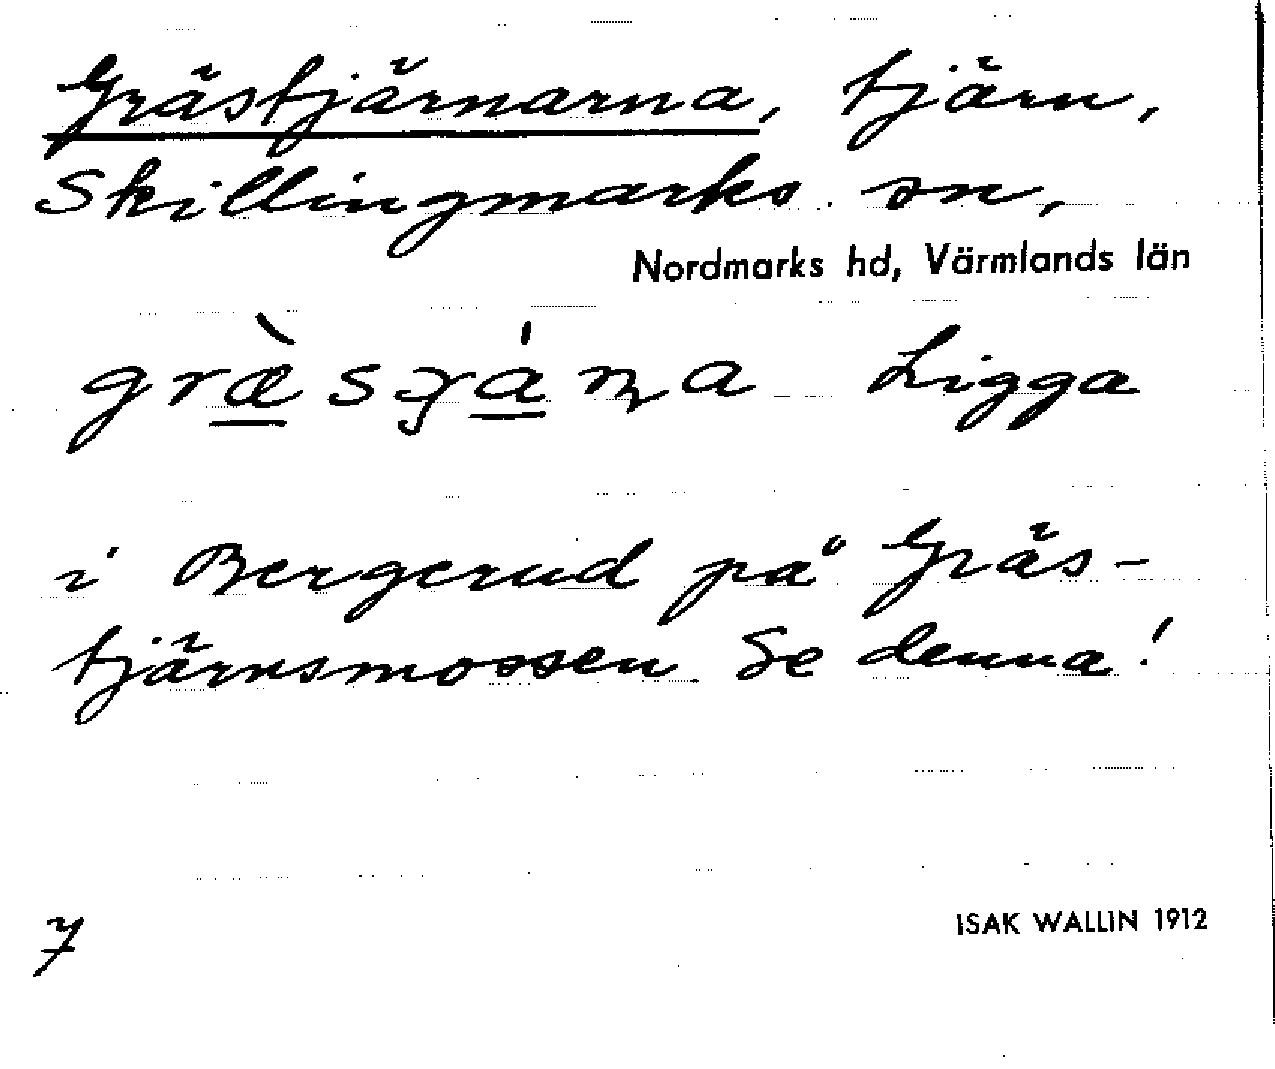 Grästjärnarna, tjärn,
Skillingmarks sn,
Nordmarks hd, Värmlands län
Ligga
i Bergerud på Gräs-
tjärnsmossen. Se denna!
7
ISAK WALLIN 1912